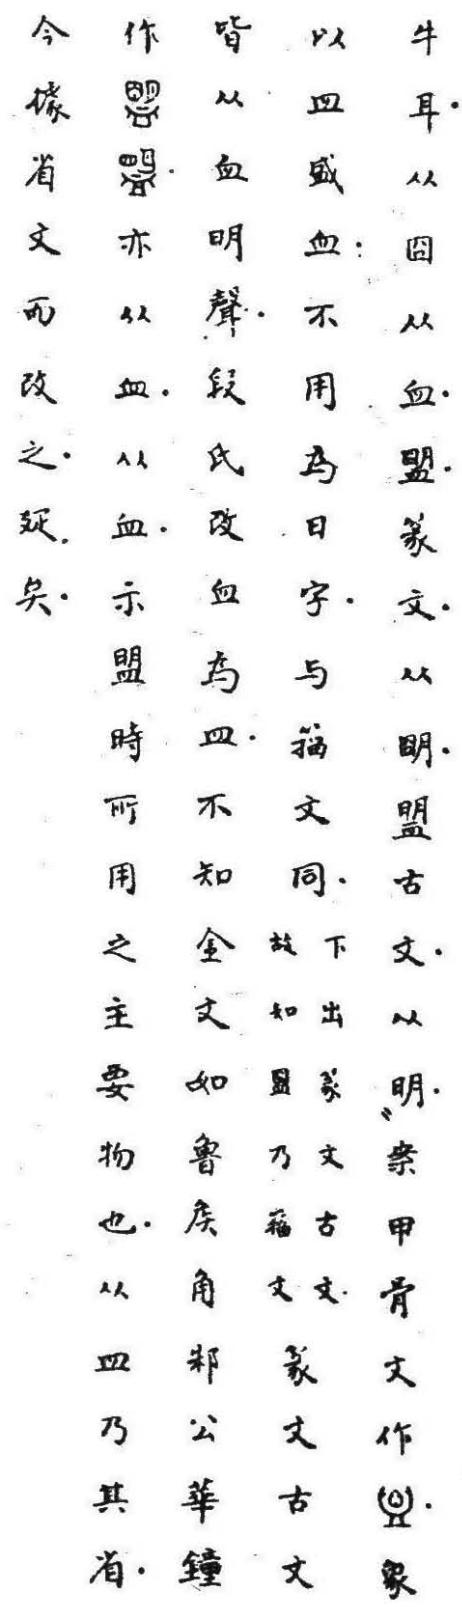 牛耳．从囧从血．盟．篆文．从朙．盟古文．从明．〞案甲骨文作．象
以皿盛血：不用為日字．与籀文同．下出篆文古文．故知盟乃籀文篆文古文
皆从血明聲．段氏改血為皿．不知金文如魯矦角邾公華鐘
作．亦从血．从血．示盟時所用之主要物也．从皿乃其省．
今據省文而改之．疑．矣．